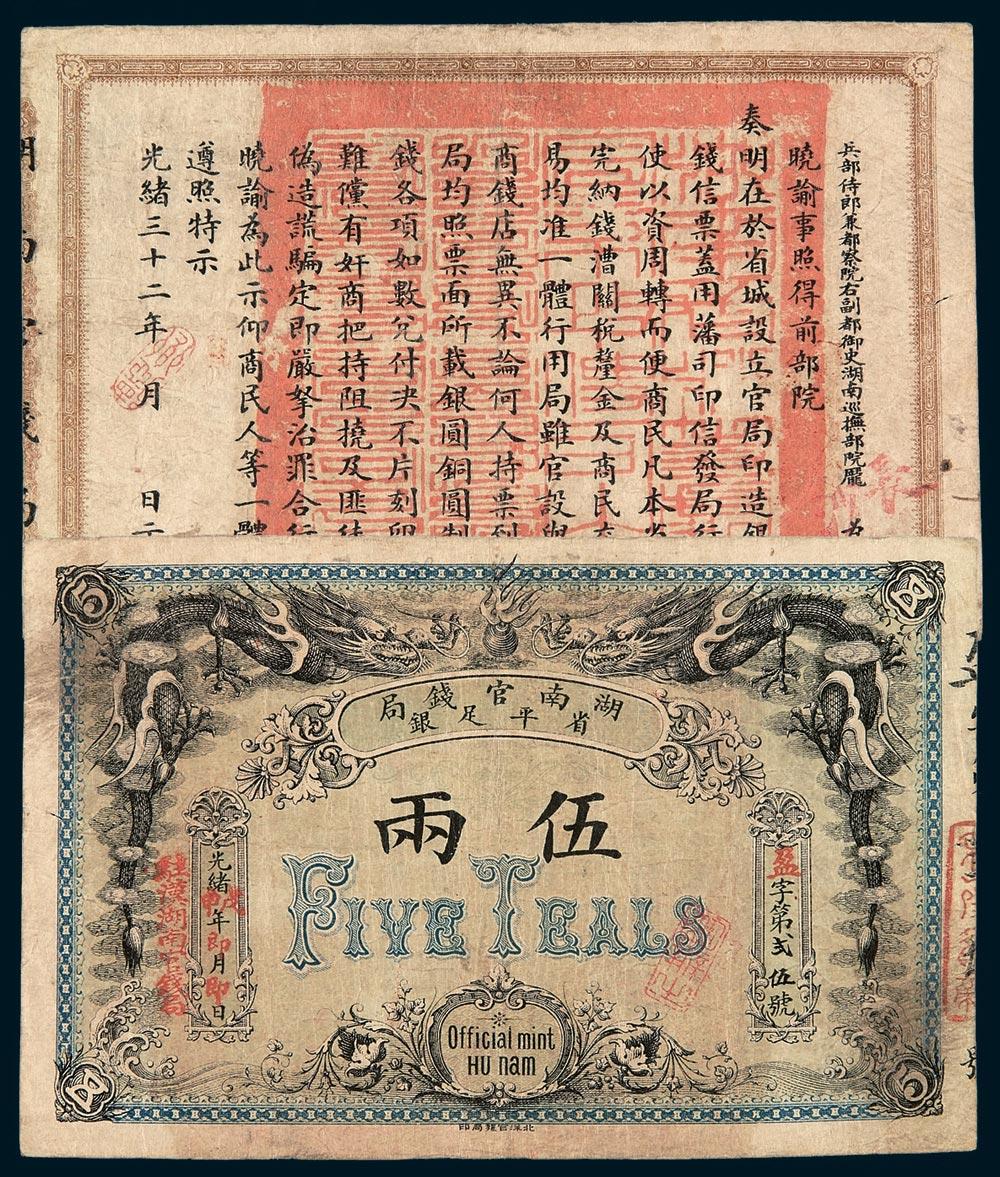 兵部侍郎兼都察院右副都御史湖南巡撫部院龐 為
曉諭事照得前部院
奏明在於省城設立官局印造銀
錢信票蓋用藩司印信發局行
使以資周轉而便商民凡本省
完納錢漕關稅釐金及商民交
易均准一體行用局雖官設與
商錢店無異不論何人持票到
局均照票面所載銀圓銅圓制
錢各項如數兌付決不片刻留
難儻有奸商把持阻撓及匪徒
偽造謊騙定即嚴拏治罪合行
曉諭為此示仰商民人等一體
遵照特示
光緒三十二年 月 日
5
湖南官錢局
省平足銀
伍兩
FIVE TEALS
盈字第弍伍號
光緒戊申年即月即日
駐漢湖南官錢局
Official mint
HU nam
5